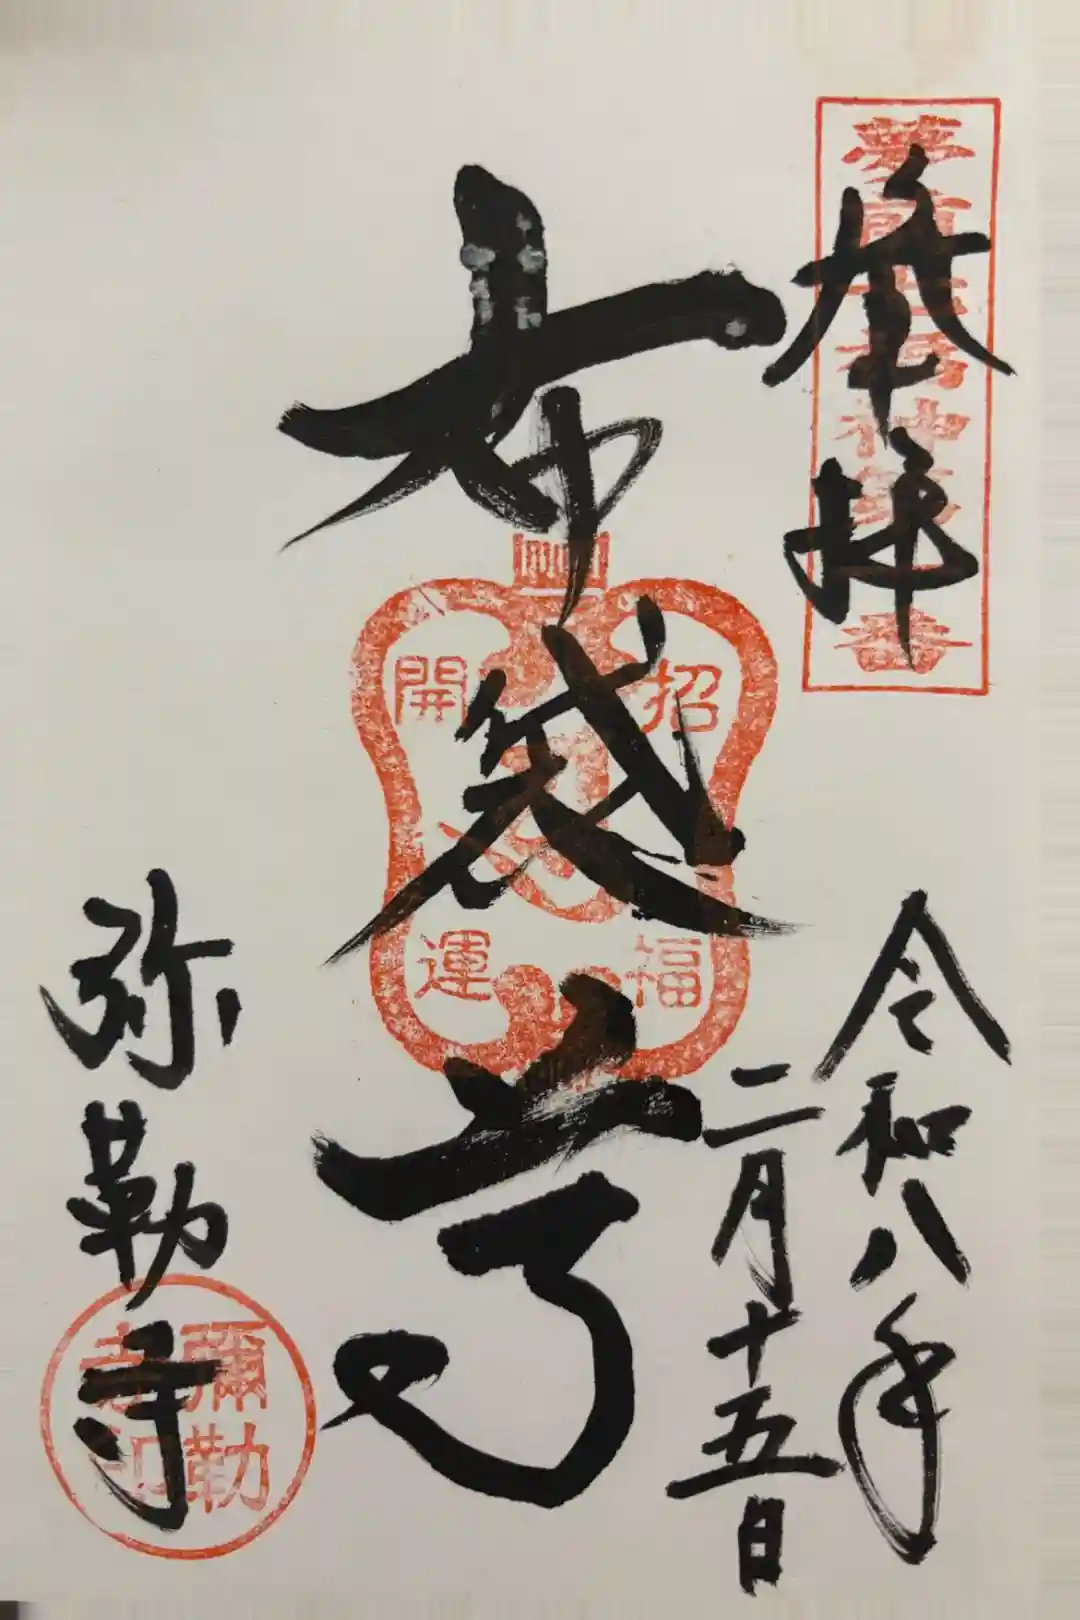 奉拝
令和八年
二月十五日
布袋尊
招福
開運
弥勒寺
彌勒
寺印